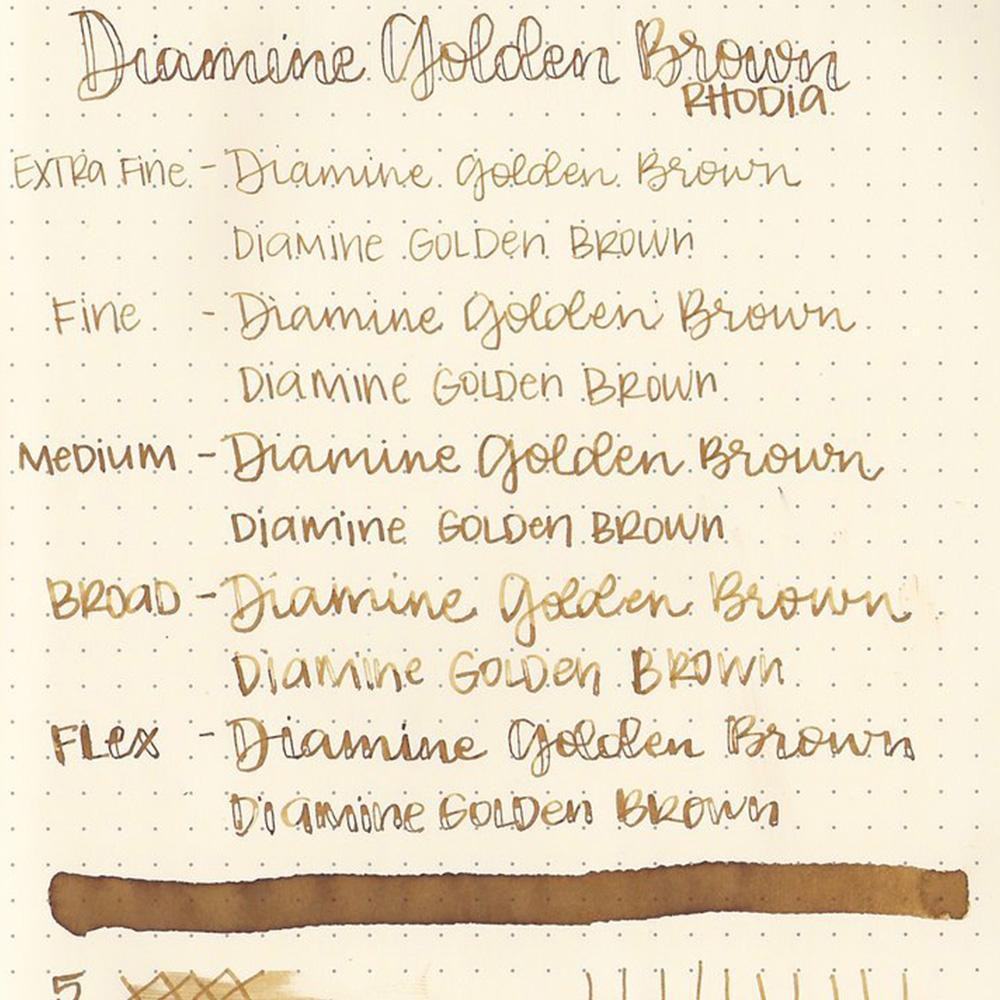 Diamine Golden Brown
RHODIA
EXTRA Fine - Diamine Golden Brown
Diamine GOLDen BROWn
Fine - Diamine Golden Brown
Diamine GOLDen BROWn
MeDium - Diamine Golden Brown
Diamine GOLDen BROWn
BROaD - Diamine Golden Brown
Diamine GOLDen BROWn
FLex - Diamine Golden Brown
Diamine GOLDen BROWn
5